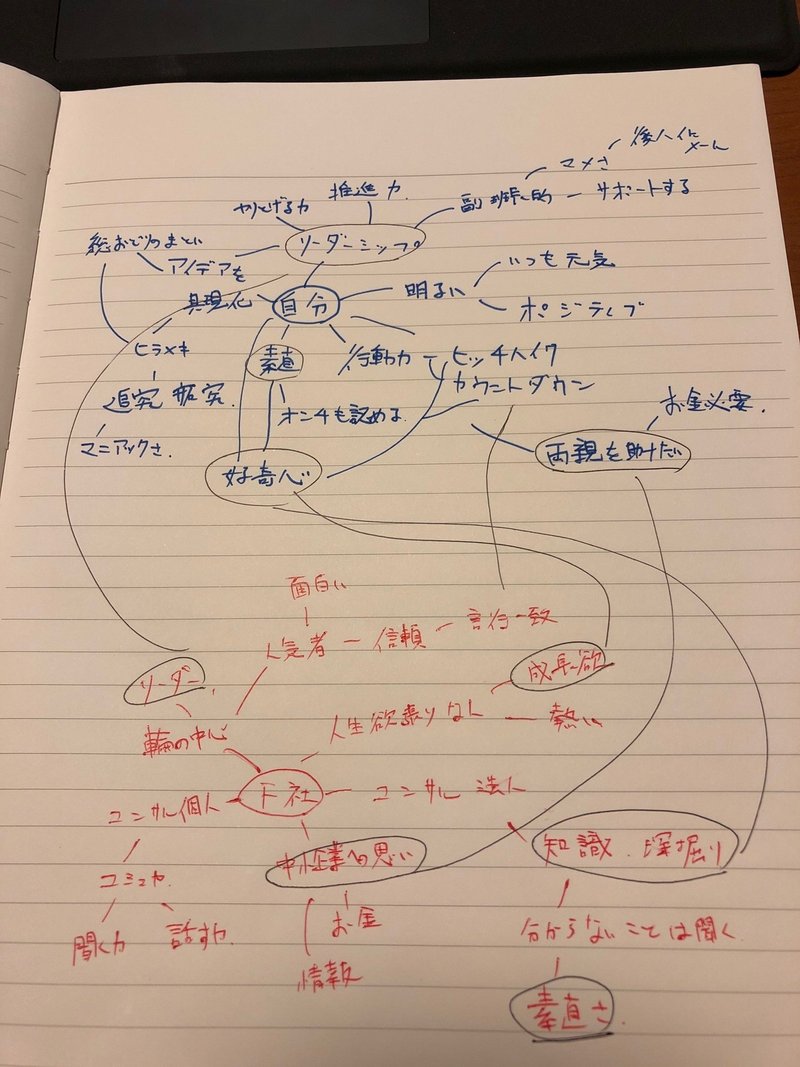 後人イに
メール
マメさ
サポートする
副班長的
推進力
やりとげる力
リーダーシップ
総おどりのまとい
アイデアを
具現化
自分
明るい
いつも元気
ポジティブ
ヒラメキ
素直
行動力
ヒッチハイク
カウントダウン
追究
マニアックさ
オンチも認める
お金必要
両親を助けたい
好奇心
面白い
人気者
信頼
言行一致
リーダー
成長欲
輪の中心
人生欲張りなん
熱い
F社
コンサル個人
コンサル 法人
中小企業への思い
知識 深掘り
コミュ力
お金
聞く力
話す力
情報
分からないことは聞く
素直さ